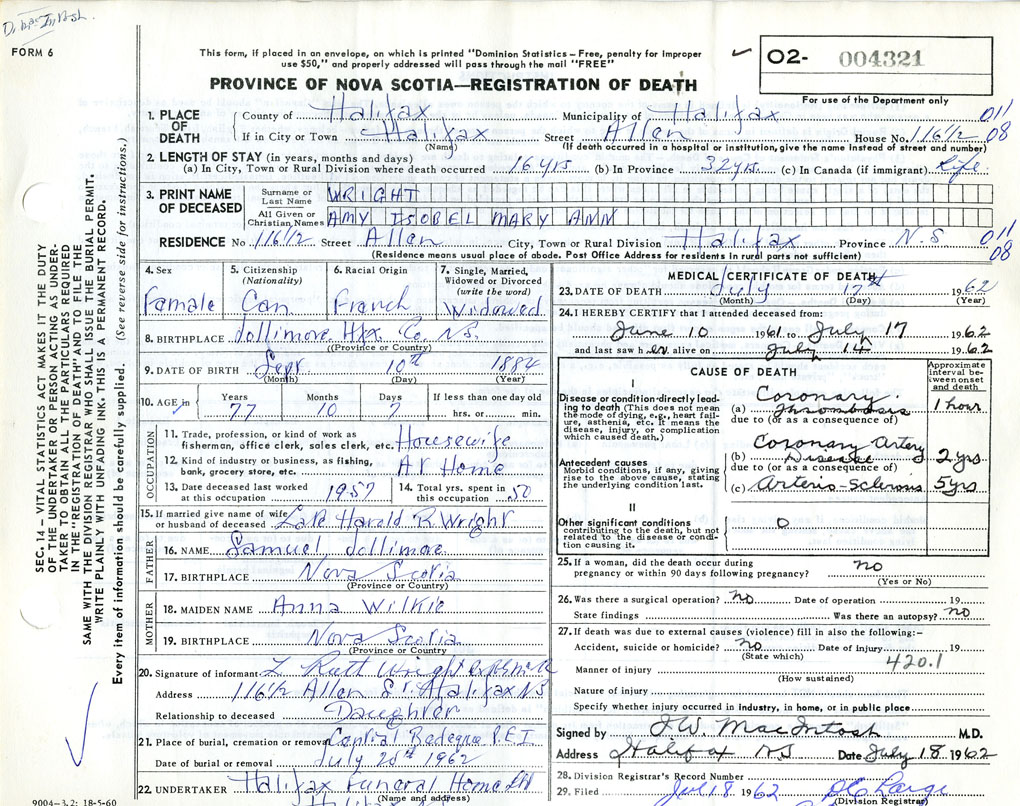 D. MacIntosh
FORM 6
This form, if placed in an envelope, on which is printed "Dominion Statistics – Free, penalty for improper
use $50," and properly addressed will pass through the mail "FREE"
PROVINCE OF NOVA SCOTIA—REGISTRATION OF DEATH
O2- 004321
For use of the Department only
1. PLACE OF DEATH County of Halifax Municipality of Halifax 011
If in City or Town Halifax Street Allen House No. 116 1/2 08
(Name) (If death occurred in a hospital or institution, give the name instead of street and number)
2. LENGTH OF STAY (in years, months and days)
(a) In City, Town or Rural Division where death occurred 16 yrs (b) In Province 32 yrs. (c) In Canada (if immigrant) Life
3. PRINT NAME OF DECEASED
Surname or Last Name WRIGHT
All Given or Christian Names AMY ISOBEL MARY ANN
RESIDENCE No 116 1/2 Street Allen City, Town or Rural Division Halifax Province N.S 011
08
(Residence means usual place of abode. Post Office Address for residents in rural parts not sufficient)
4. Sex Famale
5. Citizenship (Nationality) Can
6. Racial Origin French
7. Single, Married, Widowed or Divorced (write the word) Widowed
8. BIRTHPLACE dollimore Hfx Co. N.S.
(Province or Country)
9. DATE OF BIRTH Sept 10th 1884
(Month) (Day) (Year)
10. AGE in Years 77 Months 10 Days 7 If less than one day old hrs. or min.
OCCUPATION
11. Trade, profession, or kind of work as
fisherman, office clerk, sales clerk, etc. Housewife
12. Kind of industry or business, as fishing,
bank, grocery store, etc. At Home
13. Date deceased last worked at this occupation 1957
14. Total yrs. spent in this occupation 50
15. If married give name of wife
or husband of deceased Late Harald R Wright
FATHER
16. NAME Samuel dollimore
17. BIRTHPLACE Nova Scotia
(Province or Country)
MOTHER
18. MAIDEN NAME Anna Wilkie
19. BIRTHPLACE Nova Scotia
(Province or Country)
20. Signature of informant L Ruth Wright
Address 116 1/2 Allen St. Halifax NS
Relationship to deceased Daughter
21. Place of burial, cremation or removal Central Bedeque P.E.I
Date of burial or removal July 20th 1962
22. UNDERTAKER Halifax Funeral Home Ltd
(Name and address)
Halifax
MEDICAL CERTIFICATE OF DEATH
23. DATE OF DEATH July 17th 1962
(Month) (Day) (Year)
24. I HEREBY CERTIFY that I attended deceased from:
June 10 1961 to July 17 1962
and last saw her alive on July 14 1962
CAUSE OF DEATH
Approximate interval between onset and death
I
Disease or condition directly leading to death (This does not
mean the mode of dying, e.g., heart failure, asthenia, etc. It means the
disease, injury, or complication which caused death.)
(a) Coronary Thrombosis 1 hour
due to (or as a consequence of)
Antecedent causes
Morbid conditions, if any, giving
rise to the above cause, stating
the underlying condition last.
(b) Coronary Artery Disease 2 yrs
due to (or as a consequence of)
(c) Arterio-Sclerosis 5 yrs
II
Other significant conditions
contributing to the death, but not
related to the disease or condition
causing it.
0
25. If a woman, did the death occur during
pregnancy or within 90 days following pregnancy? no
(Yes or No)
26. Was there a surgical operation? no Date of operation 19
State findings Was there an autopsy? no
27. If death was due to external causes (violence) fill in also the following:–
Accident, suicide or homicide? no Date of injury 19
(State which)
Manner of injury 420.1
(How sustained)
Nature of injury
Specify whether injury occurred in industry, in home, or in public place
Signed by I.W. MacIntosh M.D.
Address Halifax NS Date July 18 1962
28. Division Registrar's Record Number
29. Filed Jul 18 1962
(Division Registrar)
SEC. 14 – VITAL STATISTICS ACT MAKES IT THE DUTY
OF THE UNDERTAKER OR PERSON ACTING AS UNDER-
TAKER TO OBTAIN ALL THE PARTICULARS REQUIRED
IN THE "REGISTRATION OF DEATH" AND TO FILE THE
SAME WITH THE DIVISION REGISTRAR WHO SHALL ISSUE THE BURIAL PERMIT.
WRITE PLAINLY WITH UNFADING INK. THIS IS A PERMANENT RECORD.
Every item of information should be carefully supplied. (See reverse side for instructions.)
9004-3,2: 18-5-60